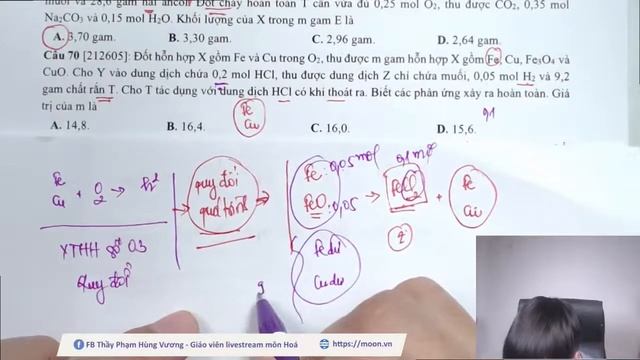 muối và 28,6 gam hai ancol. Đốt cháy hoàn toàn T cần vừa đủ 0,25 mol O₂, thu được CO₂, 0,35 mol
Na₂CO₃ và 0,15 mol H₂O. Khối lượng của X trong m gam E là
A. 3,70 gam. B. 3,30 gam. C. 2,96 gam. D. 2,64 gam.
Câu 70 [212605]: Đốt hỗn hợp X gồm Fe và Cu trong O₂, thu được m gam hỗn hợp X gồm Fe, Cu, Fe₃O₄ và
CuO. Cho Y vào dung dịch chứa 0,2 mol HCl, thu được dung dịch Z chỉ chứa muối, 0,05 mol H₂ và 9,2
gam chất rắn T. Cho T tác dụng với dung dịch HCl có khí thoát ra. Biết các phản ứng xảy ra hoàn toàn. Giá
trị của m là
A. 14,8. B. 16,4. C. 16,0. D. 15,6.
Fe
Cu
Fe
Cu + O₂ →
quy đổi
quá trình
Fe: 0,05 mol
FeO: 0,05
→ FeCl₂ + Fe
Cu
0,1 mol
Fe dư
Cu dư
Quy đổi
FB Thầy Phạm Hùng Vương - Giáo viên livestream môn Hoá
https://moon.vn